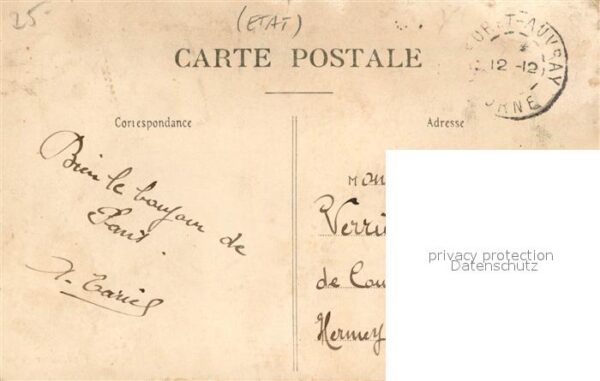 25-
(ETAT)
CARTE POSTALE
12-12
ORNE
Correspondance
Adresse
Bien le bonjour de
Paris.
Mon
Verri
de Cou
Hermey
privacy protection
Datenschutz